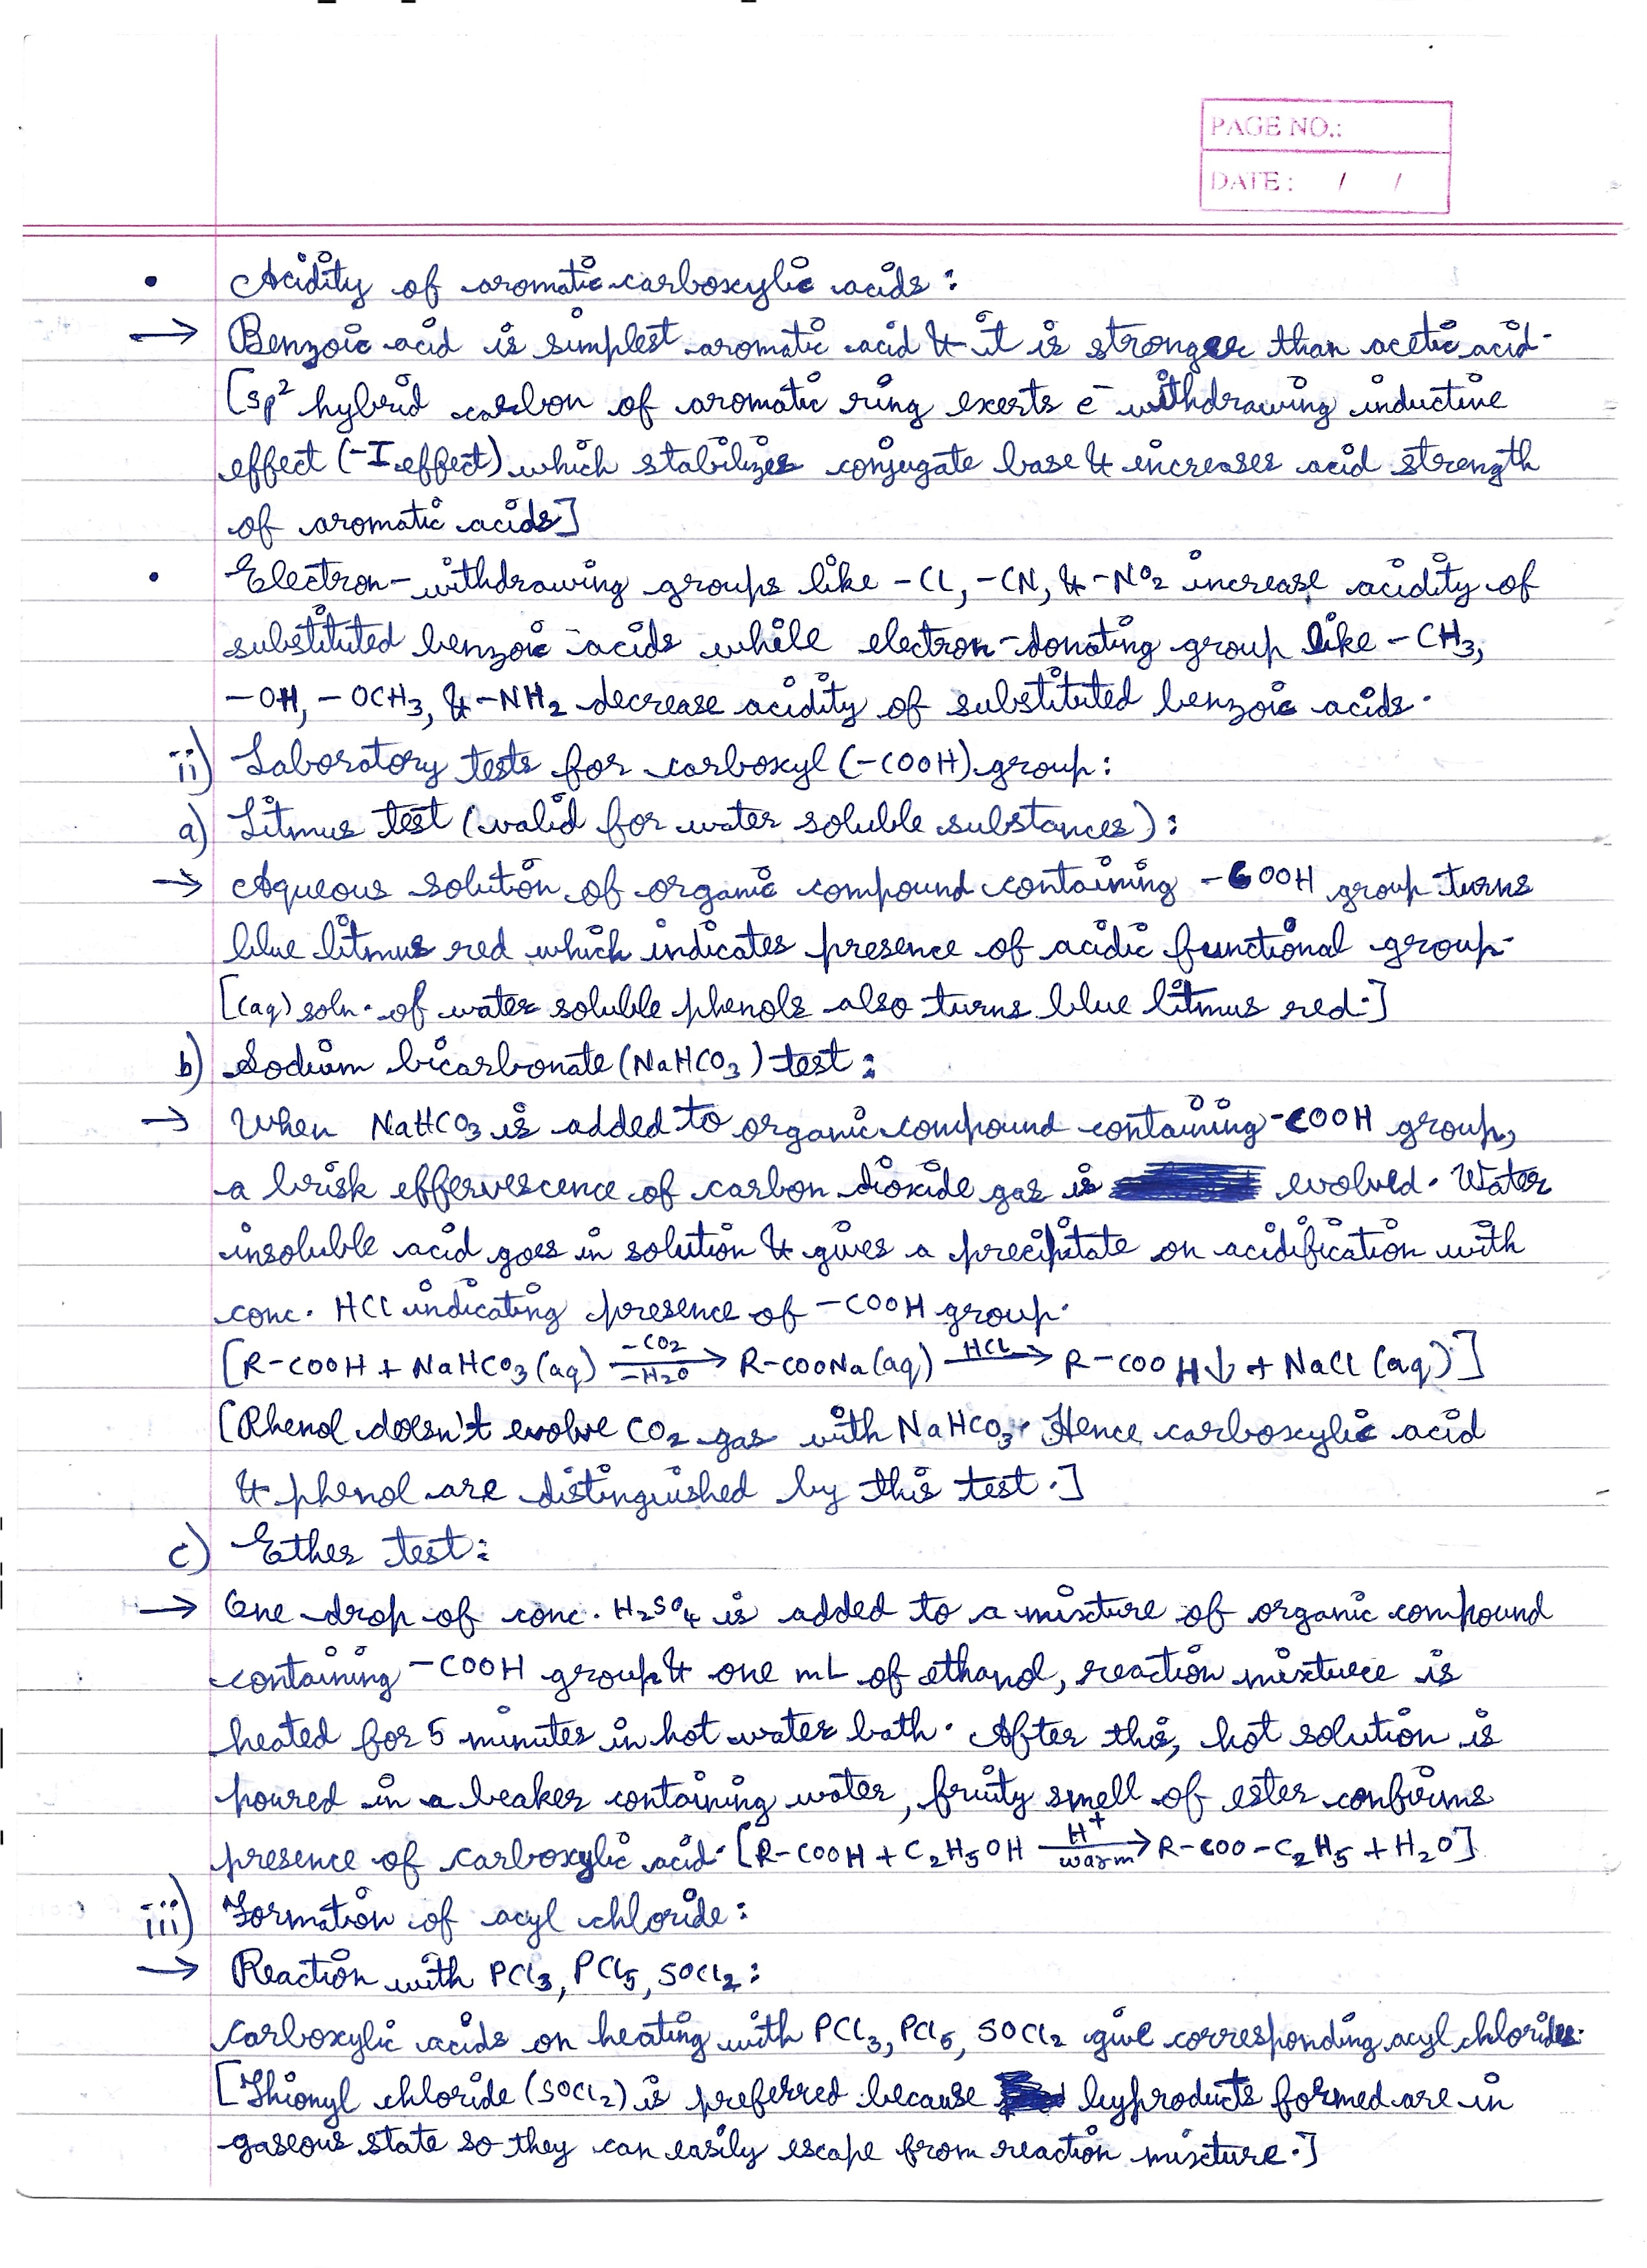 PAGE NO.:
DATE: / /
• Acidity of aromatic carboxylic acids:
→ Benzoic acid is simplest aromatic acid & it is stronger than acetic acid.
[sp² hybrid carbon of aromatic ring exerts e⁻ withdrawing inductive
effect (-I effect) which stabilizes conjugate base & increases acid strength
of aromatic acids]
• Electron-withdrawing groups like -Cl, -CN, & -NO₂ increase acidity of
substituted benzoic acids while electron-donating group like -CH₃,
-OH, -OCH₃, & -NH₂ decrease acidity of substituted benzoic acids.
ii) Laboratory tests for carboxyl (-COOH) group:
a) Litmus test (valid for water soluble substances):
→ Aqueous solution of organic compound containing -COOH group turns
blue litmus red which indicates presence of acidic functional group.
[(aq) soln. of water soluble phenols also turns blue litmus red.]
b) Sodium bicarbonate (NaHCO₃) test:
→ When NaHCO₃ is added to organic compound containing -COOH group,
a brisk effervescence of carbon dioxide gas is evolved. Water
insoluble acid goes in solution & gives a precipitate on acidification with
conc. HCl indicating presence of -COOH group.
[R-COOH + NaHCO₃(aq) -CO₂/-H₂O → R-COONa(aq) HCl → R-COOH↓ + NaCl (aq)]
[Phenol doesn't evolve CO₂ gas with NaHCO₃. Hence carboxylic acid
& phenol are distinguished by this test.]
c) Ether test:
→ One drop of conc. H₂SO₄ is added to a mixture of organic compound
containing -COOH group & one mL of ethanol, reaction mixture is
heated for 5 minutes in hot water bath. After this, hot solution is
poured in a beaker containing water, fruity smell of ester confirms
presence of carboxylic acid. [R-COOH + C₂H₅OH H⁺/warm → R-COO-C₂H₅ + H₂O]
iii) Formation of acyl chloride:
→ Reaction with PCl₃, PCl₅, SOCl₂:
Carboxylic acids on heating with PCl₃, PCl₅, SOCl₂ give corresponding acyl chlorides.
[Thionyl chloride (SOCl₂) is preferred because byproducts formed are in
gaseous state so they can easily escape from reaction mixture.]